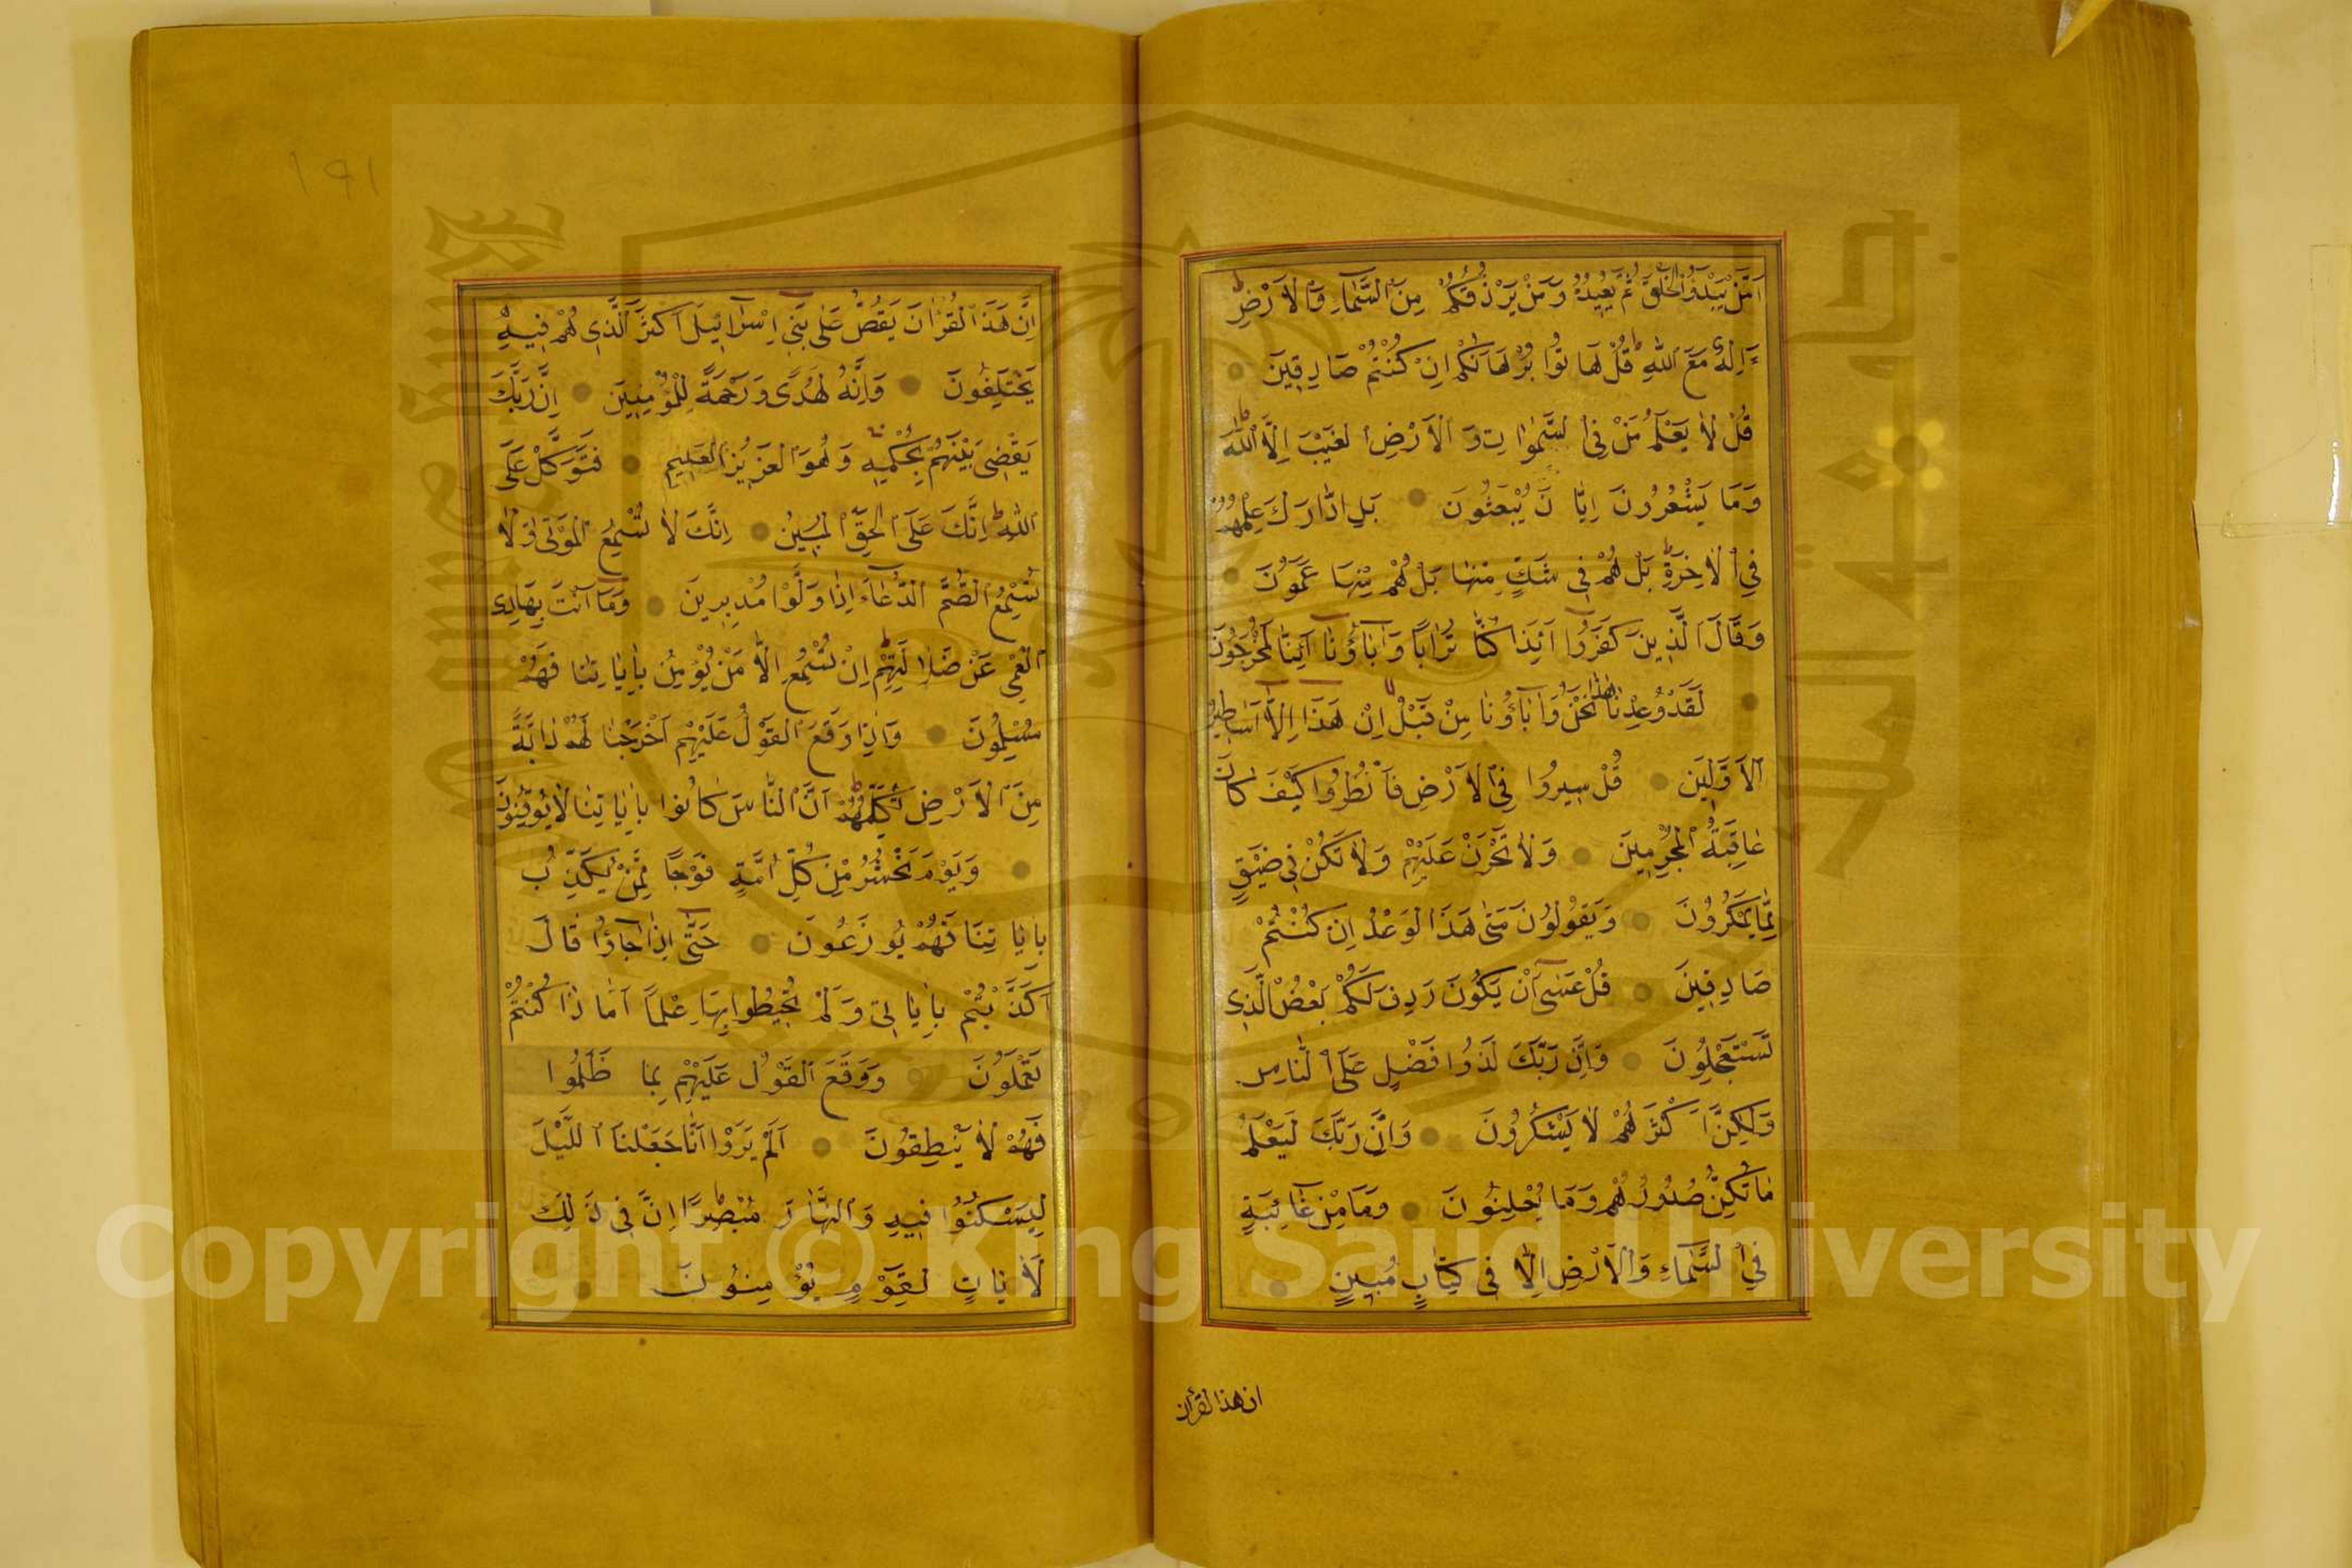 اَمَّنْ يَبْدَؤُا الْخَلْقَ ثُمَّ يُعِيدُهُ وَمَنْ يَرْزُقُكُمْ مِنَ السَّمَاءِ وَالْاَرْضِ
ءَاِلٰهٌ مَعَ اللّٰهِ قُلْ هَاتُوا بُرْهَانَكُمْ اِنْ كُنْتُمْ صَادِقِينَ
قُلْ لَا يَعْلَمُ مَنْ فِي السَّمٰوَاتِ وَالْاَرْضِ الْغَيْبَ اِلَّا اللّٰهُ
وَمَا يَشْعُرُونَ اَيَّانَ يُبْعَثُونَ بَلِ ادَّارَكَ عِلْمُهُمْ
فِي الْاٰخِرَةِ بَلْ هُمْ فِي شَكٍّ مِنْهَا بَلْ هُمْ مِنْهَا عَمُونَ
وَقَالَ الَّذِينَ كَفَرُوا اَئِذَا كُنَّا تُرَابًا وَاٰبَاؤُنَا اَئِنَّا لَمُخْرَجُونَ
لَقَدْ وُعِدْنَا هٰذَا نَحْنُ وَاٰبَاؤُنَا مِنْ قَبْلُ اِنْ هَذَا اِلَّا اَسَاطِيرُ
الْاَوَّلِينَ قُلْ سِيرُوا فِي الْاَرْضِ فَانْظُرُوا كَيْفَ كَانَ
عَاقِبَةُ الْمُجْرِمِينَ وَلَا تَحْزَنْ عَلَيْهِمْ وَلَا تَكُنْ فِي ضَيْقٍ
مِمَّا يَمْكُرُونَ وَيَقُولُونَ مَتٰى هَذَا الْوَعْدُ اِنْ كُنْتُمْ
صَادِقِينَ قُلْ عَسٰى اَنْ يَكُونَ رَدِفَ لَكُمْ بَعْضُ الَّذِي
تَسْتَعْجِلُونَ وَاِنَّ رَبَّكَ لَذُوا فَضْلٍ عَلَى النَّاسِ
وَلٰكِنَّ اَكْثَرَهُمْ لَا يَشْكُرُونَ وَاِنَّ رَبَّكَ لَيَعْلَمُ
مَا تُكِنُّ صُدُورُهُمْ وَمَا يُعْلِنُونَ وَمَا مِنْ غَائِبَةٍ
فِي السَّمَاءِ وَالْاَرْضِ اِلَّا فِي كِتَابٍ مُبِينٍ
ان هذا القرآن
١٩١
اِنَّ هَذَا الْقُرْاٰنَ يَقُصُّ عَلٰى بَنِي اِسْرَائِيلَ اَكْثَرَ الَّذِي هُمْ فِيهِ
يَخْتَلِفُونَ وَاِنَّهُ لَهُدًى وَرَحْمَةٌ لِلْمُؤْمِنِينَ اِنَّ رَبَّكَ
يَقْضِي بَيْنَهُمْ بِحُكْمِهِ وَهُوَ الْعَزِيزُ الْعَلِيمُ فَتَوَكَّلْ عَلَى
اللّٰهِ اِنَّكَ عَلَى الْحَقِّ الْمُبِينِ اِنَّكَ لَا تُسْمِعُ الْمَوْتٰى وَلَا
تُسْمِعُ الصُّمَّ الدُّعَاءَ اِذَا وَلَّوْا مُدْبِرِينَ وَمَا اَنْتَ بِهَادِي
الْعُمْيِ عَنْ ضَلَالَتِهِمْ اِنْ تُسْمِعُ اِلَّا مَنْ يُؤْمِنُ بِاٰيَاتِنَا فَهُمْ
مُسْلِمُونَ وَاِذَا وَقَعَ الْقَوْلُ عَلَيْهِمْ اَخْرَجْنَا لَهُمْ دَابَّةً
مِنَ الْاَرْضِ تُكَلِّمُهُمْ اَنَّ النَّاسَ كَانُوا بِاٰيَاتِنَا لَا يُوقِنُونَ
وَيَوْمَ نَحْشُرُ مِنْ كُلِّ اُمَّةٍ فَوْجًا مِمَّنْ يُكَذِّبُ
بِاٰيَاتِنَا فَهُمْ يُوزَعُونَ حَتّٰى اِذَا جَاؤُا قَالَ
اَكَذَّبْتُمْ بِاٰيَاتِي وَلَمْ تُحِيطُوا بِهَا عِلْمًا اَمَّاذَا كُنْتُمْ
تَعْمَلُونَ وَوَقَعَ الْقَوْلُ عَلَيْهِمْ بِمَا ظَلَمُوا
فَهُمْ لَا يَنْطِقُونَ اَلَمْ يَرَوْا اَنَّا جَعَلْنَا اللَّيْلَ
لِيَسْكُنُوا فِيهِ وَالنَّهَارَ مُبْصِرًا اِنَّ فِي ذَلِكَ
لَاٰيَاتٍ لِقَوْمٍ يُؤْمِنُونَ
Copyright © King Saud University